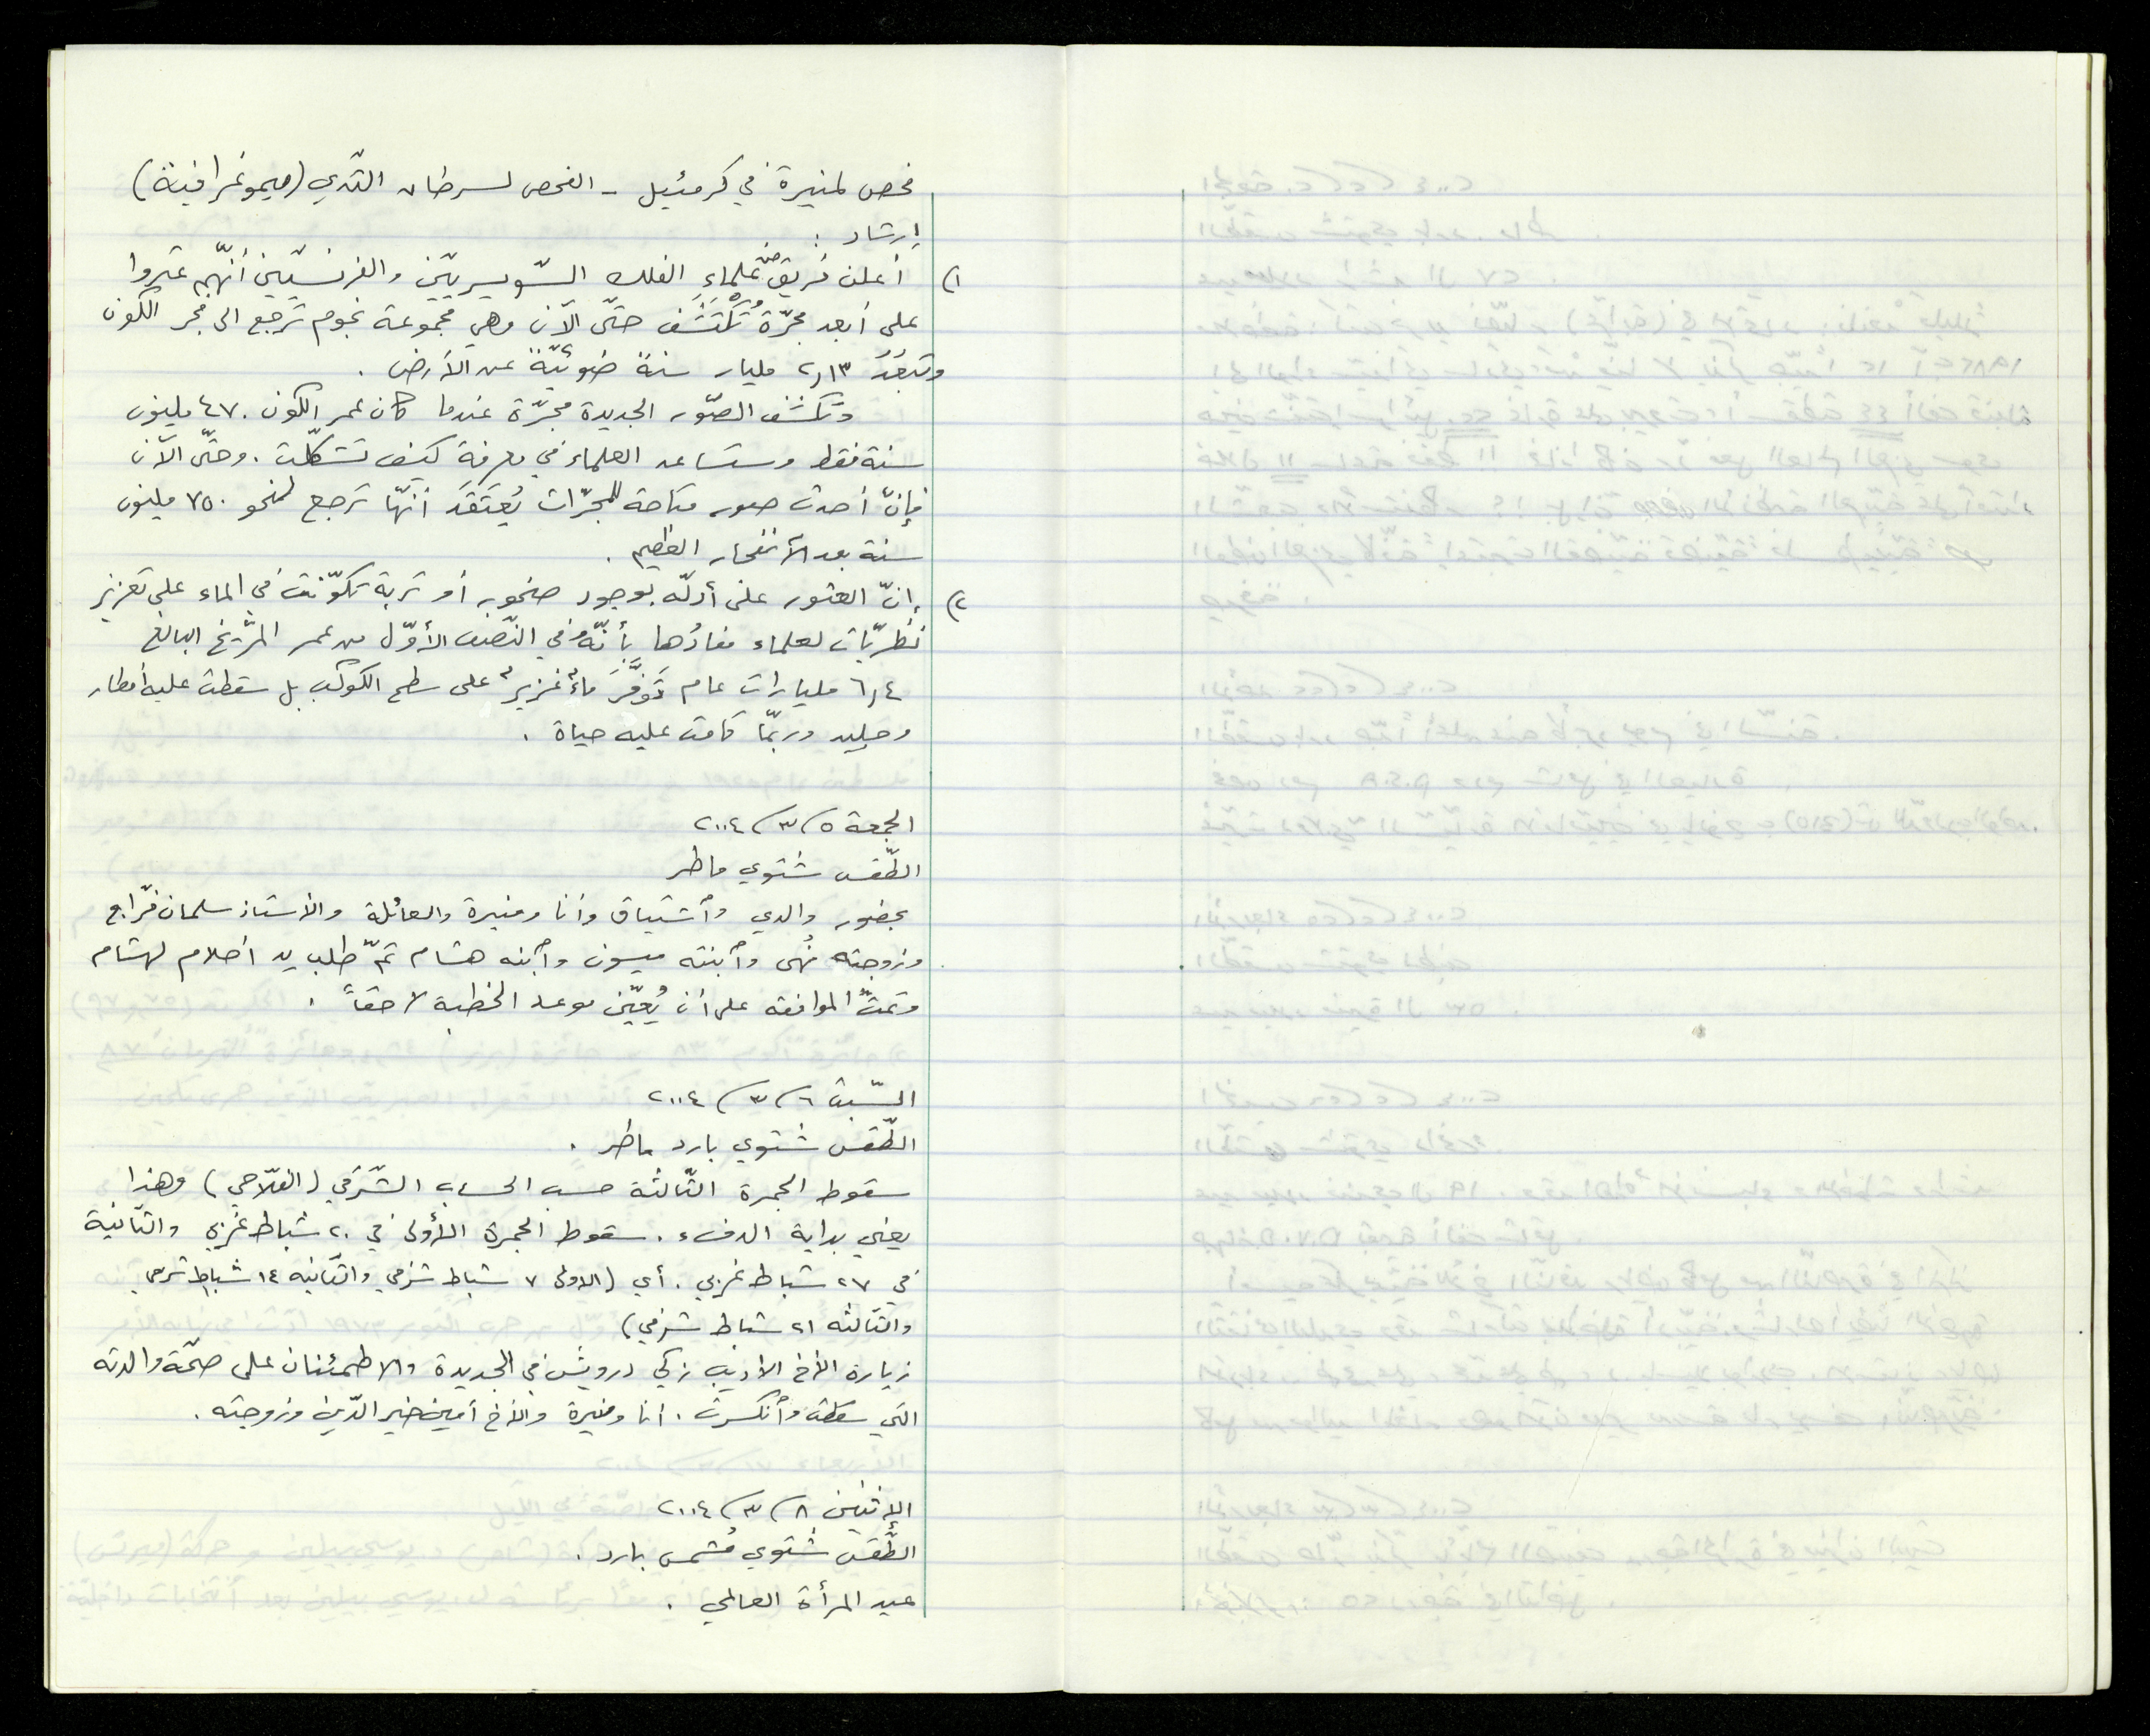 فحص لمنيرة في كرمئيل - الفحص لسرطان الثّدي (ميموغرافية)
إرشاد :
١) أعلن فريق من علماءِ الفلك السّويسريّين والفرنسيّين أنّهم عثروا
على أبعد مجرّة تُكْتَشَف حتّى الآن وهي مجموعة نجوم تَرجع الى فجر الكون
وتبعُدُ ١٣,٢ مليار سنة ضوئيّة عن الأرض .
وتكشف الصّور الجديدة مجرّة عندما كان عمر الكون ٤٧٠ مليون
سنة فقط وستساعد العلماء في معرفة كيف تشكّلت . وحتّى الآن
فإنّ أحدث صور متاحة للمجرّات يُعتَقَد أنّها تَرجع لنحو ٧٥٠ مليون
سنة بعد الأنفجار العظيم .
٢) إنّ العثور على أدلّه بوجود صخور أو تربة تكوّنت في الماء على تعزيز
نظريّات لعلماء مفادُها بأنّهُ في النّصف الأوّل من عمر المرّيخ البالغ
٤,٦ مليارات عام تَوفَّرَ ماءٌ غزيرٌ على سطح الكوكب بل سقطت عليه أمطار
وجليد وربّما كانت عليه حياة .
الجمعة ٥/ ٣/ ٢٠٠٤
الطّقس شتوي ماطر
بحضور والدي وٱشتياق وأنا ومنيرة والعائلة والأستاذ سلمان فرّاج
وزوجته نُهى وٱبنته ميسون وٱبنه هشام تمّ طلب يد أحلام لهشام
وتمتّ الموافقه على أن يُعيّن موعد الخطبة لاحقاً .
السّبت ٦/ ٣/ ٢٠٠٤
الطّقس شتوي بارد ماطر .
سقوط الجمرة الثّالثة حسب الحساب الشّرقي (الفلّاحي) وهذا
يعني بداية الدفء . سقوط الجمرة الأولى في ٢٠ شباط غربي والثّانية
في ٢٧ شباط غربي . أي (الاولى ٧ شباط شرقي والثّانيه ١٤ شباط شرقي
والثّالثه ٢١ شباط شرقي)
زيارة الأخ الأديب زكي درويش في الجديدة والاطمئنان على صحّة والدته
التي سقطت وٱنكسرت . أنا ومنيرة والأخ أمين خير الدّين وزوجته .
الإثنين ٨/ ٣/ ٢٠٠٤
الطّقس شتوي مُشمس بارد .
عيد المرأة العالمي .